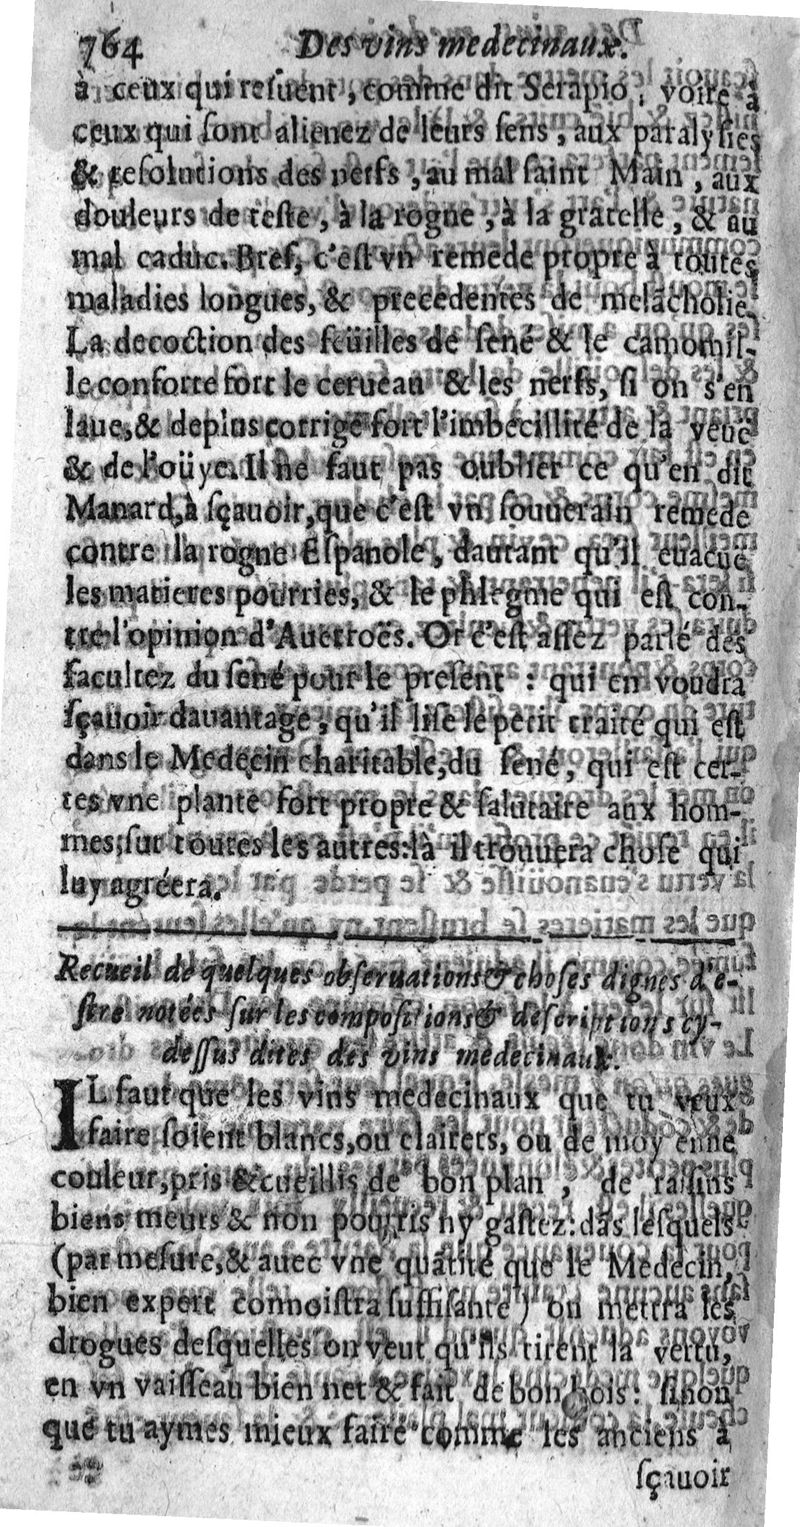 764 Des vins medecinaux.
à ceux qui resuent, comme dit Serapio, voire à
ceux qui sont alienez de leurs sens, aux paralysies
& resolutions des nerfs, au mal saint Main, aux
douleurs de teste, à la rogne, à la gratelle, & au
mal caduc. Bref, c'est vn remede propre à toutes
maladies longues, & precedentes de melācholie.
La decoction des feüilles de sené & le camomil-
le conforte fort le cerueau & les nerfs, si on s'en
laue, & deplus corrige fort l'imbecillité de la veuë
& de l'oüye. Il ne faut pas oublier ce qu'en dit
Manard, à sçauoir, que c'est vn souuerain remede
contre la rogne Espanole, dautant qu'il euacuë
les matieres pourries, & le phlegme qui est con-
tre l'opinion d'Auerroës. Or c'est assez parlé des
facultez du sené pour le present : qui en voudra
sçauoir dauantage, qu'il lise le petit traité qui est
dans le Medecin charitable, du sené, qui est cer-
tes vne plante fort propre & salutaire aux hom-
mes, sur toutes les autres: là il trouuera chose qui
luy agréera.
Recueil de quelques obseruations & choses dignes d'e-
stre notées sur les compositions & descriptions cy-
dessus dites des vins medecinaux.
IL faut que les vins medecinaux que tu veux
faire soient blancs, ou clairets, ou de moyenne
couleur, pris & cueillis de bon plan, de raisins
biens meurs & non pourris ny gastez: dās lesquels
(par mesure, & auec vne quātité que le Medecin,
bien expert connoistra suffisante) on mettra les
drogues desquelles on veut qu'ils tirent la vertu,
en vn vaisseau bien net & fait de bon bois: sinon
que tu aymes mieux faire comme les anciens à
sçauoir